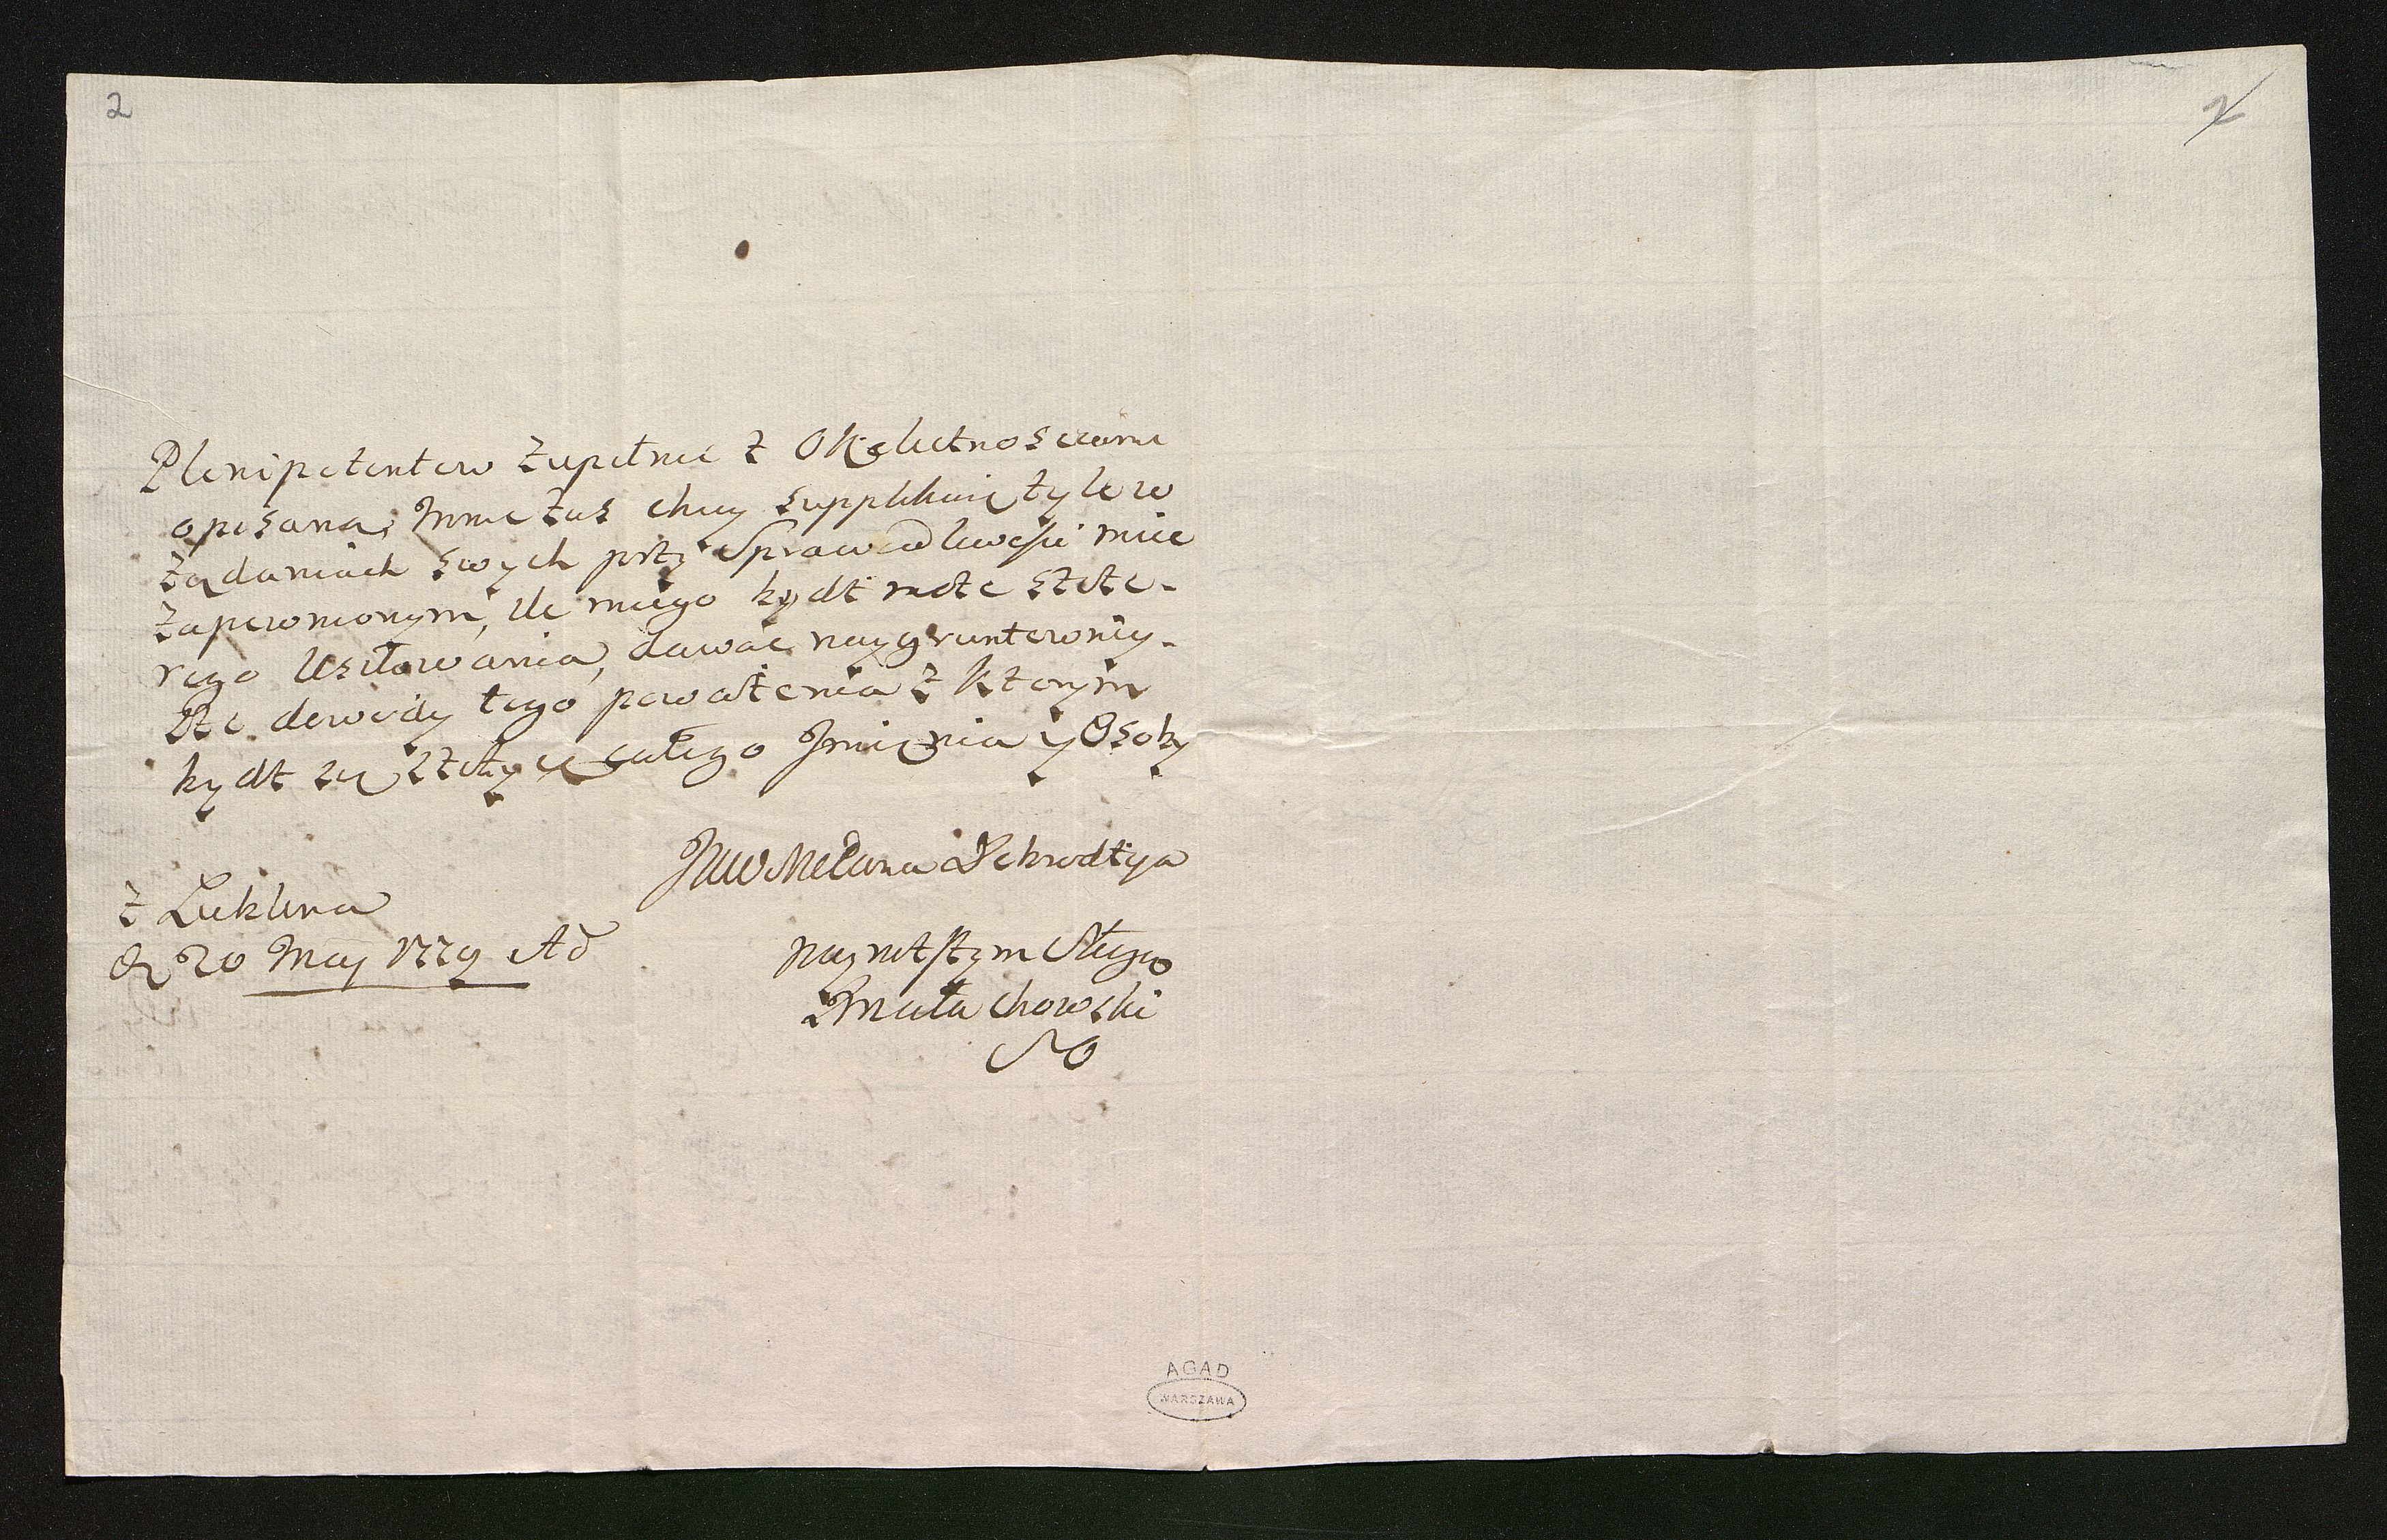 2
2
Plenipotentow zupełnie z Okolicznosciami
opisana, mnie zas chciey supplikuię tyle w
żądaniach swych przy Sprawiedliwości mieć
zapewnionym, ile mieysca bydź może szcze-
rego Usiłowania, dawać naygruntownie-
sze dowody tego poważenia z ktorym
bydź się szczyce całego Imienia y Osoby
JWW Mc Pana Dobrodzieja
z Lublina
d 20 May 1779 Ao
nayniższym Sługą
Małachowski
AGAD
WARSZAWA